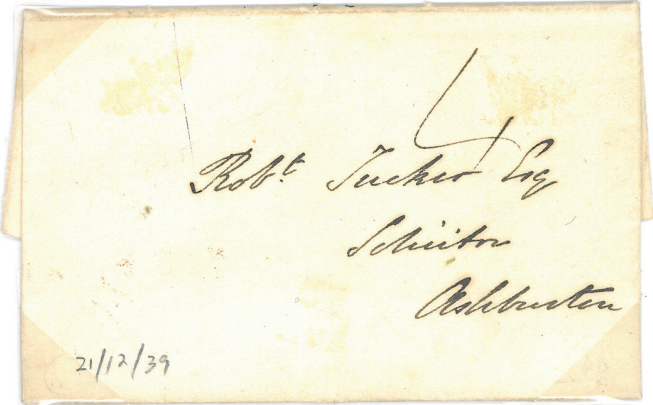 4
Robt. Tucker Esq
Solicitor
Ashburton
21/12/39